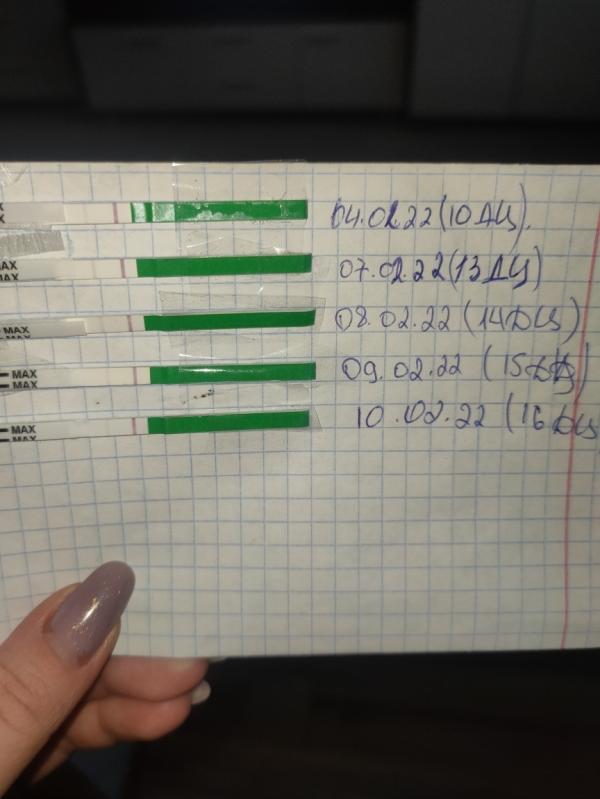 04.02.22 (10 ДЦ).
MAX
07.02.22 (13 ДЦ)
MAX
MAX
08.02.22 (14 ДЦ)
MAX
MAX
09.02.22 (15 ДЦ)
MAX
MAX
10.02.22 (16 ДЦ